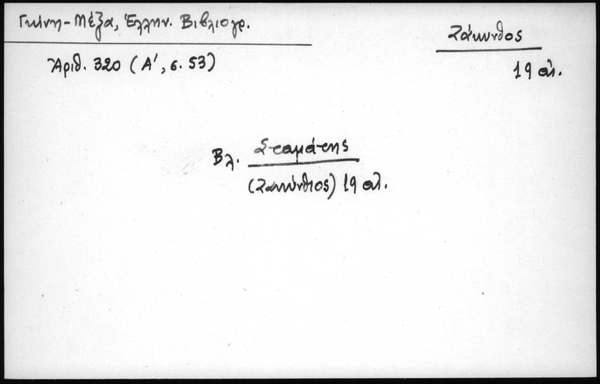 Γκίνη-Μέξα, Ἑλλην. Βιβλιογρ.
Ζάκυνθος
Ἀριθ. 320 (Α', σ. 53)
19 αἰ.
Βλ. Σταμάτης
(Ζακύνθιος) 19 αἰ.